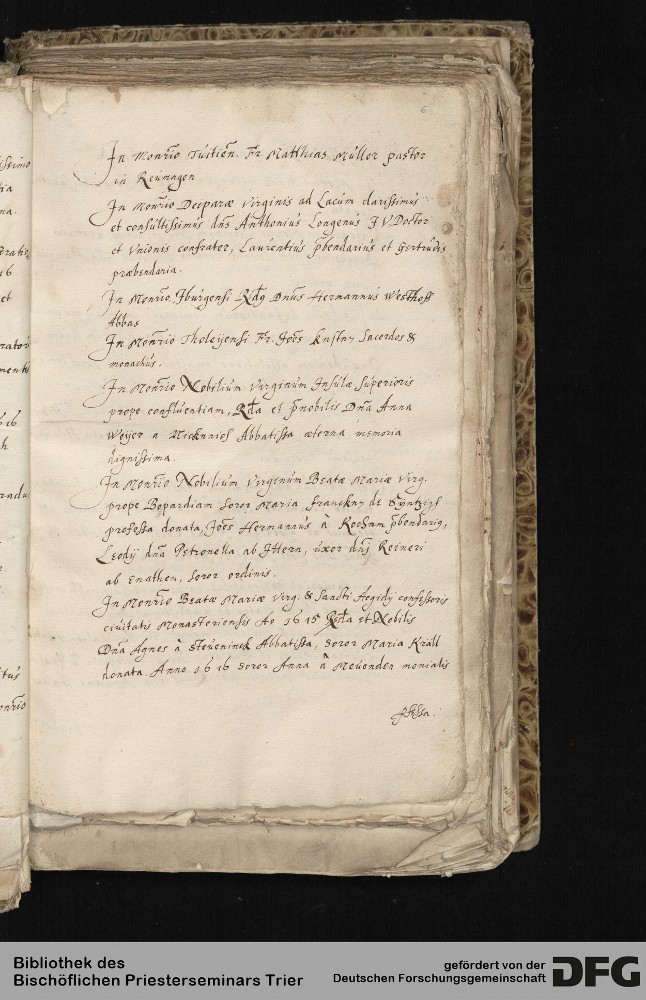 6
In Monrio Tuitien. Fr. Matthias Müller pastor
in Reumagen
In Monrio Deiparæ Virginis ad Lacum clarissimus
et consultissimus dns Anthonius Longenus J V Doctor
et Unionis confrater, Laurentius pbendarius et Gertrudis
præbendaria.
In Monrio Iburgensi Rdg Dnus Hermannus Westhoff
Abbas
In Monrio Tholeijensi Fr. Joes Sacerdos &
monachus.
In Monrio Nobilium Virginum Insulæ Superioris
prope confluentiam, Rda et pnobilis Dna Anna
Weijer a Nicknnich Abbatissa æterna memoria
dignissima.
In Monrio Nobilium Virginum Beatæ Mariæ Virg.
prope Bopardiam Soror Maria de
professa donata, Joes Hermannus à pbendarig,
Leodij dna Petronella ab Ittern, uxor dnj Reineri
ab Enathen, soror ordinis.
In Monrio Beatæ Mariæ Virg. & Sancti Aegidij confessoris
civitatis Monasteriensis Ao 1615 Rda et Nobilis
Dna Agnes à Steveninck Abbatissa, Soror Maria Kräll
donata. Anno 1616 soror Anna à Mevenden monialis
Bibliothek des
Bischöflichen Priesterseminars Trier
gefördert von der
Deutschen Forschungsgemeinschaft
DFG